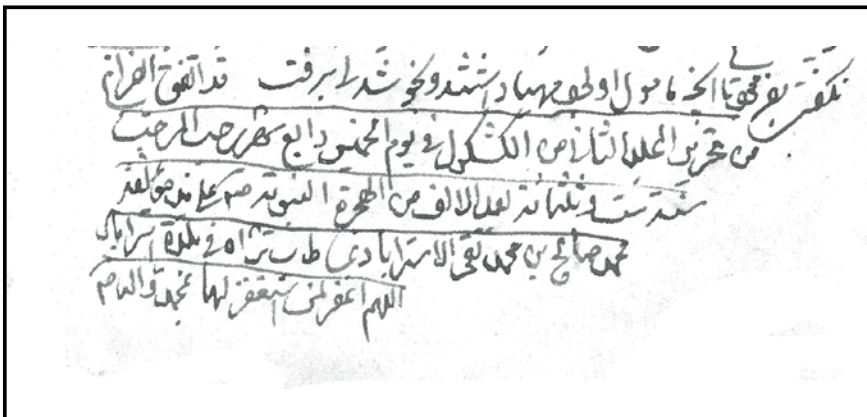 نکفت بفرمود تا آنچه مامول او بود مهیا داشتند و بخوشدلی برفت قد اتفق الفراغ
من تحریر المجلد الثانی من الکشکول فی یوم الخمیس رابع شهر رجب المرجب
سنه ست و ثلثمائه بعد الالف من الهجرة النبویه علی ید مولفه
محمد صالح بن محمد تقی الاسترابادی طاب ثراه فی بلدة استراباد
اللهم اغفر لمن استغفر لهما بمحمد و اله